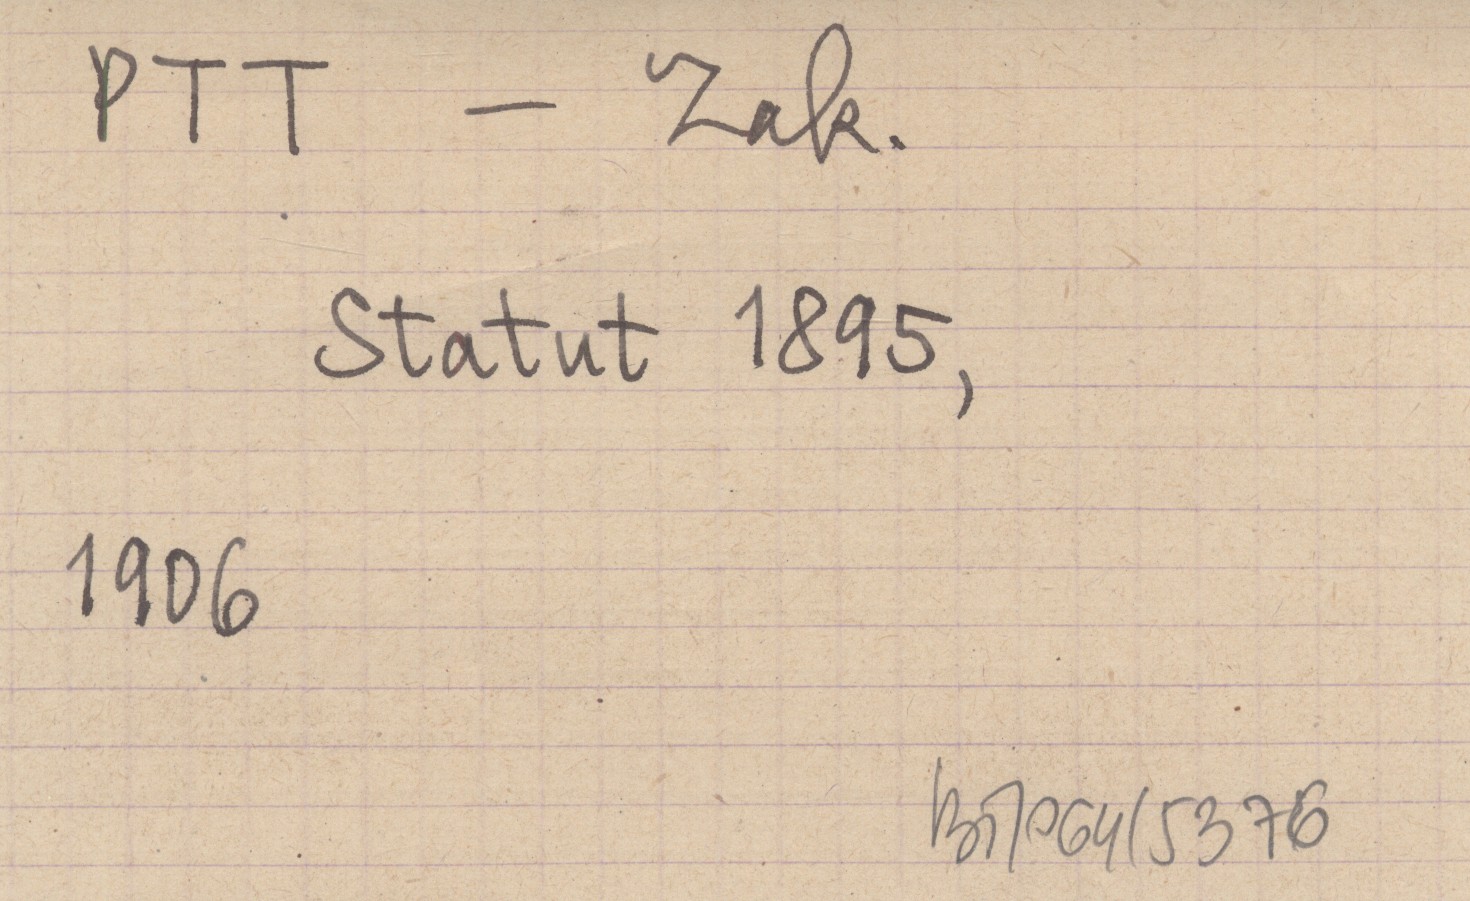 PTT - Zak.
Statut 1895,
1906
5376